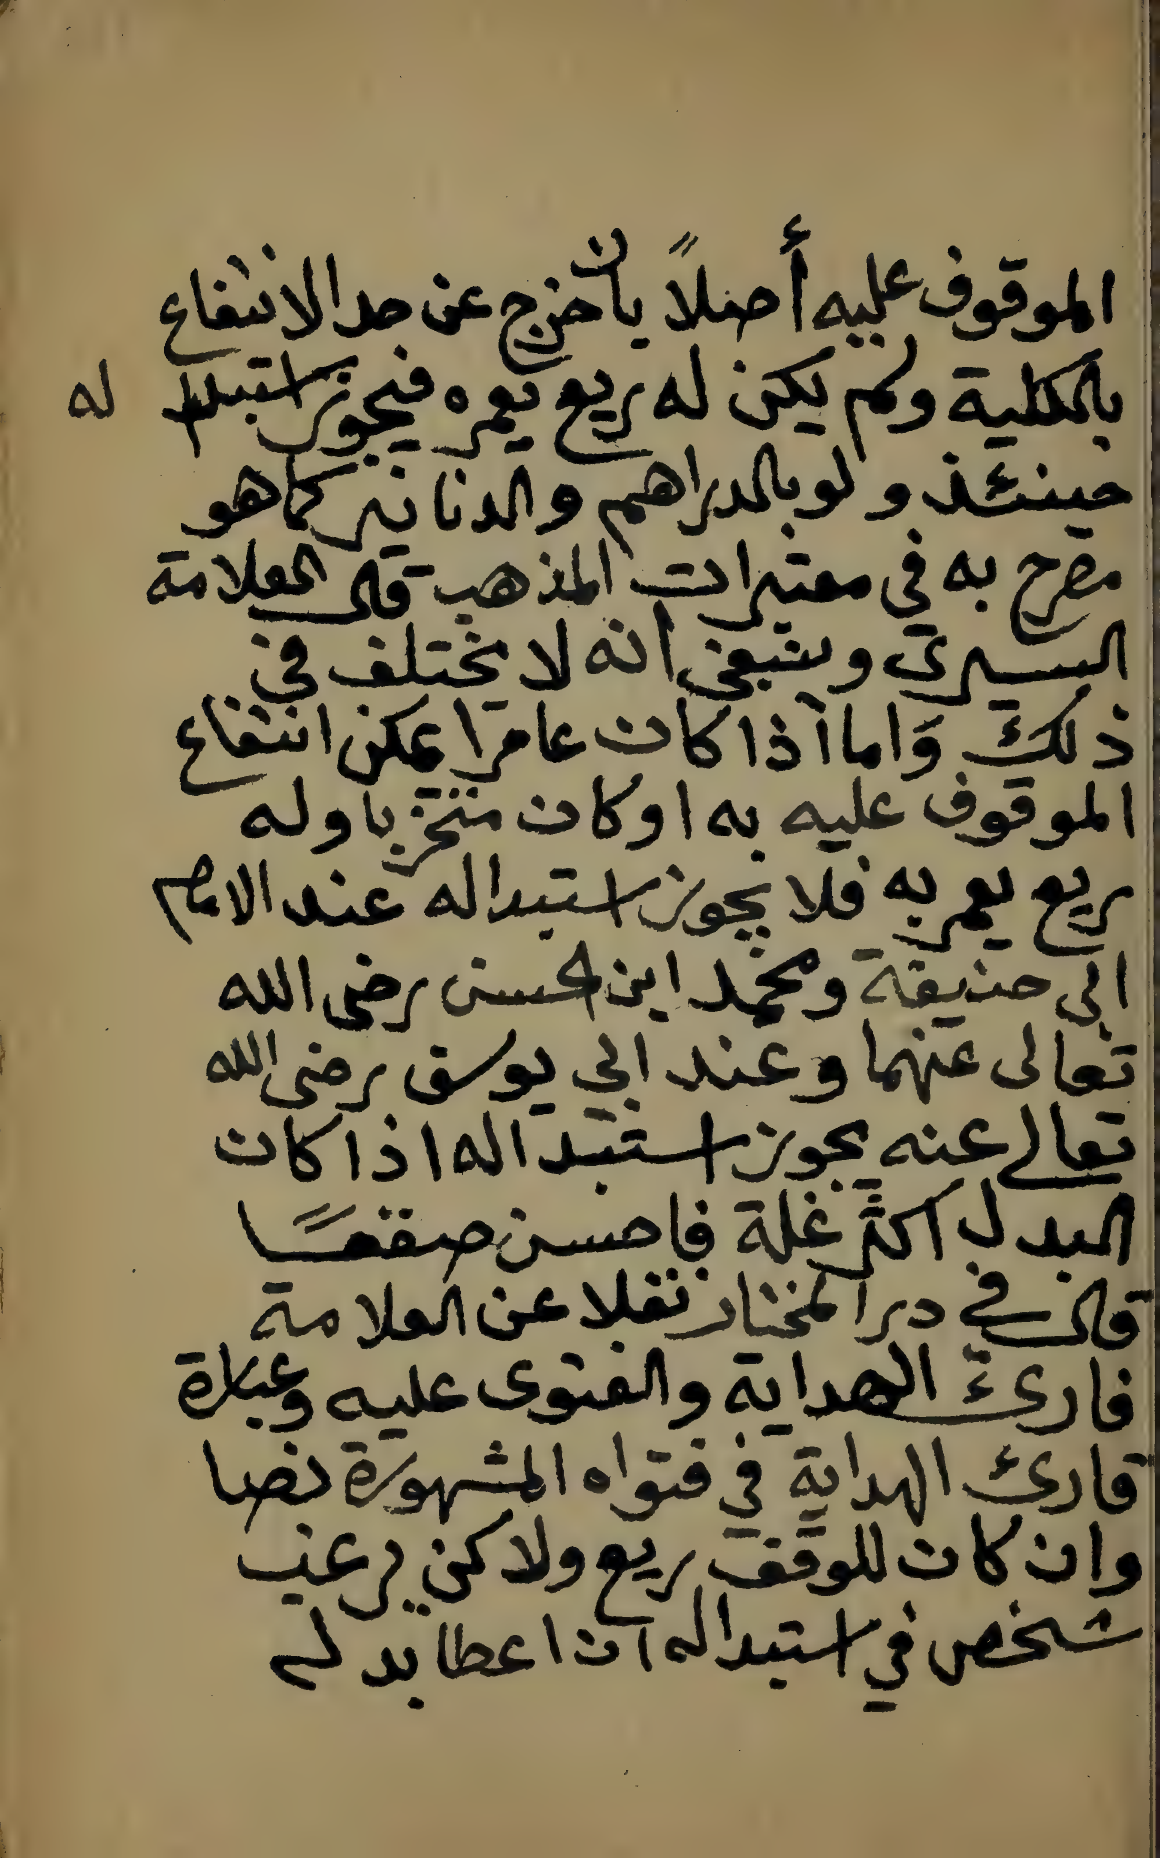 الموقوف عليه أصلاً بان خرج عن حد الانتفاع
بالكلية ولم يكن له ريع يعمره فيجوز استبدا له
حينئذ ولو بالدراهم والدنانير كما هو
مصرح به في معتبرات المذهب قال العلامة
البيري وينبغي انه لا يختلف في
ذلك واما اذا كان عامرا يمكن انتفاع
الموقوف عليه به او كان متخربا وله
ريع يعمر به فلا يجوز استبداله عند الامام
ابي حنيفة ومحمد ابن الحسن رضى الله
تعالى عنهما وعند ابي يوسف رضى الله
تعالى عنه يجوز استبداله اذا كان
البدل اكثر غلة فاحسن صقعًا
قال في در المختار نقلا عن العلامة
قارئ الهداية والفتوى عليه وعبارة
قارئ الهداية في فتواه المشهورة نصها
وان كان للوقف ريع ولاكن يرغب
شخص في استبداله ان اعطا بدله